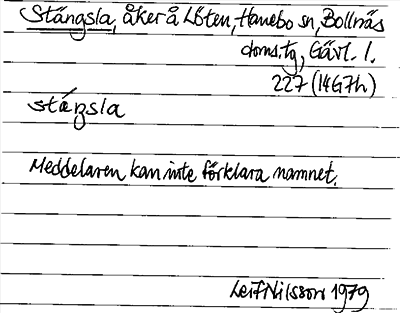 Stängsla, åker å Löten, Hanebo sn, Bollnäs
doms.tg, Gävl. l.
227 (14G7h)
stáŋsla
Meddelaren kan inte förklara namnet.
Leif Nilsson 1979